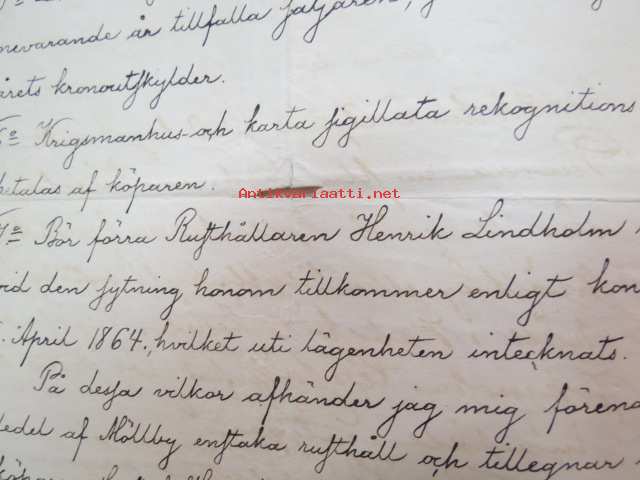 nevarande år tillfalla säljaren,
årets kronoutskylder.
6º Krigsmanhus- och karta sigillata rekognitions
betalas af köparen.
Antikvariaatti.net
7º Bör förra Rusthållaren Henrik Lindholm
vid den sytning honom tillkommer enligt kon
April 1864., hvilket uti lägenheten intecknats.
På dessa vilkor afhänder jag mig förena
dedel af Möllby enstaka rusthåll och tillegnar